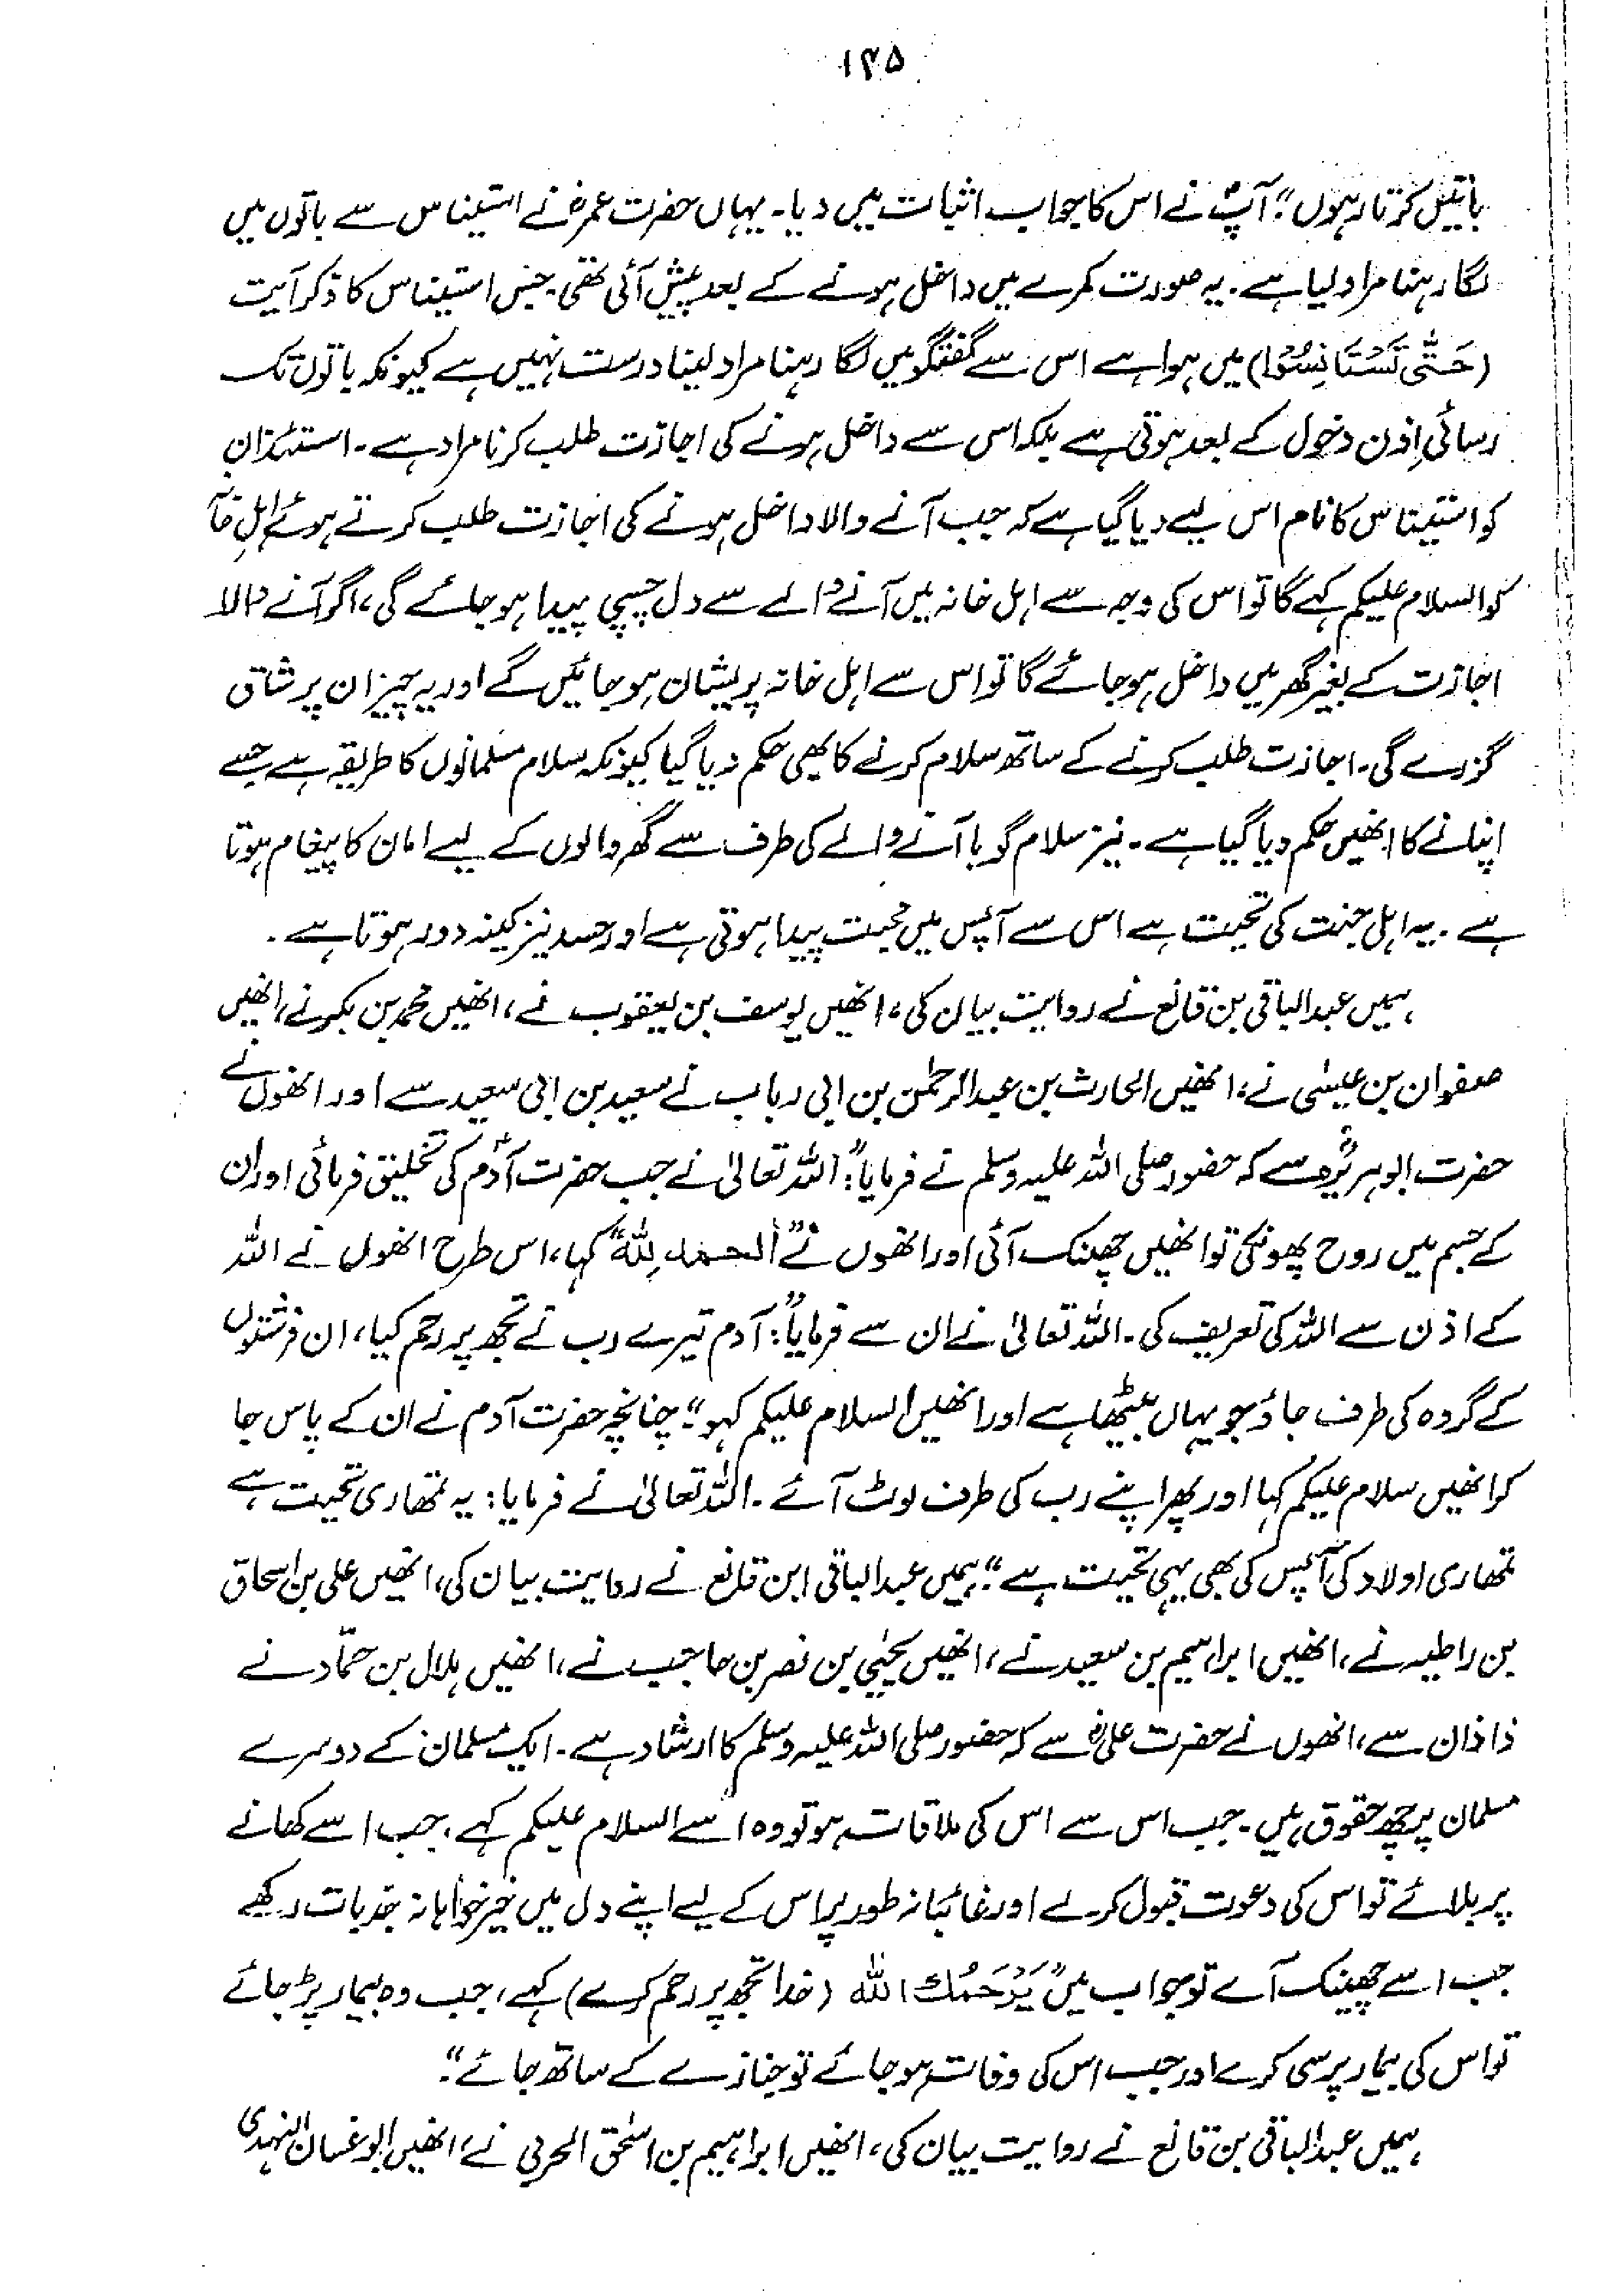 ۱۴۵
باتیں کرتا رہوں“؛ آپؐ نے اس کا جواب اثبات میں دیا۔ یہاں حضرت عمرؓ نے استیناس سے باتوں میں
لگا رہنا مراد لیا ہے۔ یہ صورت کمرے میں داخل ہونے کے بعد پیش آئی تھی۔ جس استیناس کا ذکر آیت
(حَتّٰی تَسْتَانِسُوْا) میں ہوا ہے اس سے گفتگو میں لگا رہنا مراد لینا درست نہیں ہے کیونکہ باتوں تک
رسائی اِذن دخول کے بعد ہوتی ہے بلکہ اس سے داخل ہونے کی اجازت طلب کرنا مراد ہے۔ استئذان
کو استیناس کا نام اس لیے دیا گیا ہے کہ جب آنے والا داخل ہونے کی اجازت طلب کرتے ہوئے اہلِ خانہ
کو السلام علیکم کہے گا تو اس کی وجہ سے اہل خانہ میں آنے والے سے دل چسپی پیدا ہو جائے گی، اگر آنے والا
اجازت کے بغیر گھر میں داخل ہو جائے گا تو اس سے اہل خانہ پریشان ہو جائیں گے اور یہ چیز ان پر شاق
گزرے گی۔ اجازت طلب کرنے کے ساتھ سلام کرنے کا بھی حکم دیا گیا کیونکہ سلام مسلمانوں کا طریقہ ہے جسے
اپنانے کا انھیں حکم دیا گیا ہے۔ نیز سلام گویا آنے والے کی طرف سے گھر والوں کے لیے امان کا پیغام ہوتا
ہے۔ یہ اہل جنت کی تحیت ہے اس سے آپس میں محبت پیدا ہوتی ہے اور حسد نیز کینہ دور ہوتا ہے۔
ہمیں عبدالباقی بن قانع نے روایت بیان کی، انھیں یوسف بن یعقوب نے، انھیں محمد بن بکر نے، انھیں
صفوان بن عیسٰی نے، انھیں الحارث بن عبدالرحمٰن بن ابی رباب نے سعید بن ابی سعید سے اور انھوں نے
حضرت ابوہریرہؓ سے کہ حضور صلی اللہ علیہ وسلم نے فرمایا: ”اللہ تعالیٰ نے جب حضرت آدمؑ کی تخلیق فرمائی اور ان
کے جسم میں روح پھونکی تو انھیں چھینک آئی اور انھوں نے ”الحمد لِلّٰہ“ کہا، اس طرح انھوں نے اللہ
کے اذن سے اللہ کی تعریف کی۔ اللہ تعالیٰ نے ان سے فرمایا: ”آدم تیرے رب نے تجھ پر رحم کیا، ان فرشتوں
کے گروہ کی طرف جاؤ جو یہاں بیٹھا ہے اور انھیں السلام علیکم کہو“؛ چنانچہ حضرت آدم نے ان کے پاس جا
کر انھیں سلام علیکم کہا اور پھر اپنے رب کی طرف لوٹ آئے۔ اللہ تعالیٰ نے فرمایا: یہ تمھاری تحیت ہے
تمھاری اولاد کی آپس کی بھی یہی تحیت ہے“؛ ہمیں عبدالباقی ابن قانع نے روایت بیان کی، انھیں علی بن اسحاق
بن راطیہ نے، انھیں ابراہیم بن سعید نے، انھیں یحییٰ بن نصر بن حاجب نے، انھیں ہلال بن حمّاد نے
ذاذان سے، انھوں نے حضرت علیؓ سے کہ حضور صلی اللہ علیہ وسلم کا ارشاد ہے۔ ایک مسلمان کے دوسرے
مسلمان پر چھ حقوق ہیں۔ جب اس سے اس کی ملاقات ہو تو وہ اسے السلام علیکم کہے، جب اسے کھانے
پر بلائے تو اس کی دعوت قبول کرلے اور غائبانہ طور پر اس کے لیے اپنے دل میں خیرخواہانہ جذبات رکھے
جب اسے چھینک آے تو جواب میں ”یَرْحَمُكَ اللّٰہ (خدا تجھ پر رحم کرے) کہے، جب وہ بیمار پڑ جائے
تو اس کی بیمار پرسی کرے اور جب اس کی وفات ہو جائے تو جنازے کے ساتھ جائے“؛
ہمیں عبدالباقی بن قانع نے روایت بیان کی، انھیں ابراہیم بن اسحٰق الحربی نے، انھیں ابو غسان النہدی